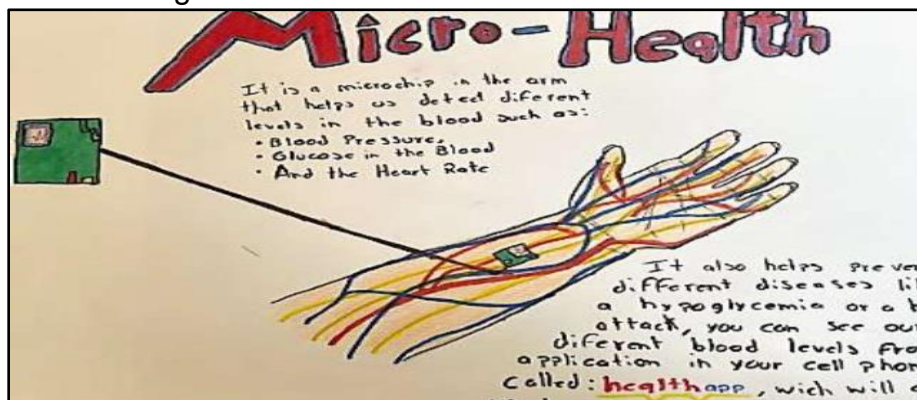 Micro-Health
It is a microchip in the arm
that helps us deted diferent
levels in the blood such as:
• Blood Pressure,
• Glucose in the Blood
• And the Heart Rate
It also helps
different diseases
a hypoglycemia or a
attack, you can see
diferent blood levels
application in your cell
called: healthapp, wich will